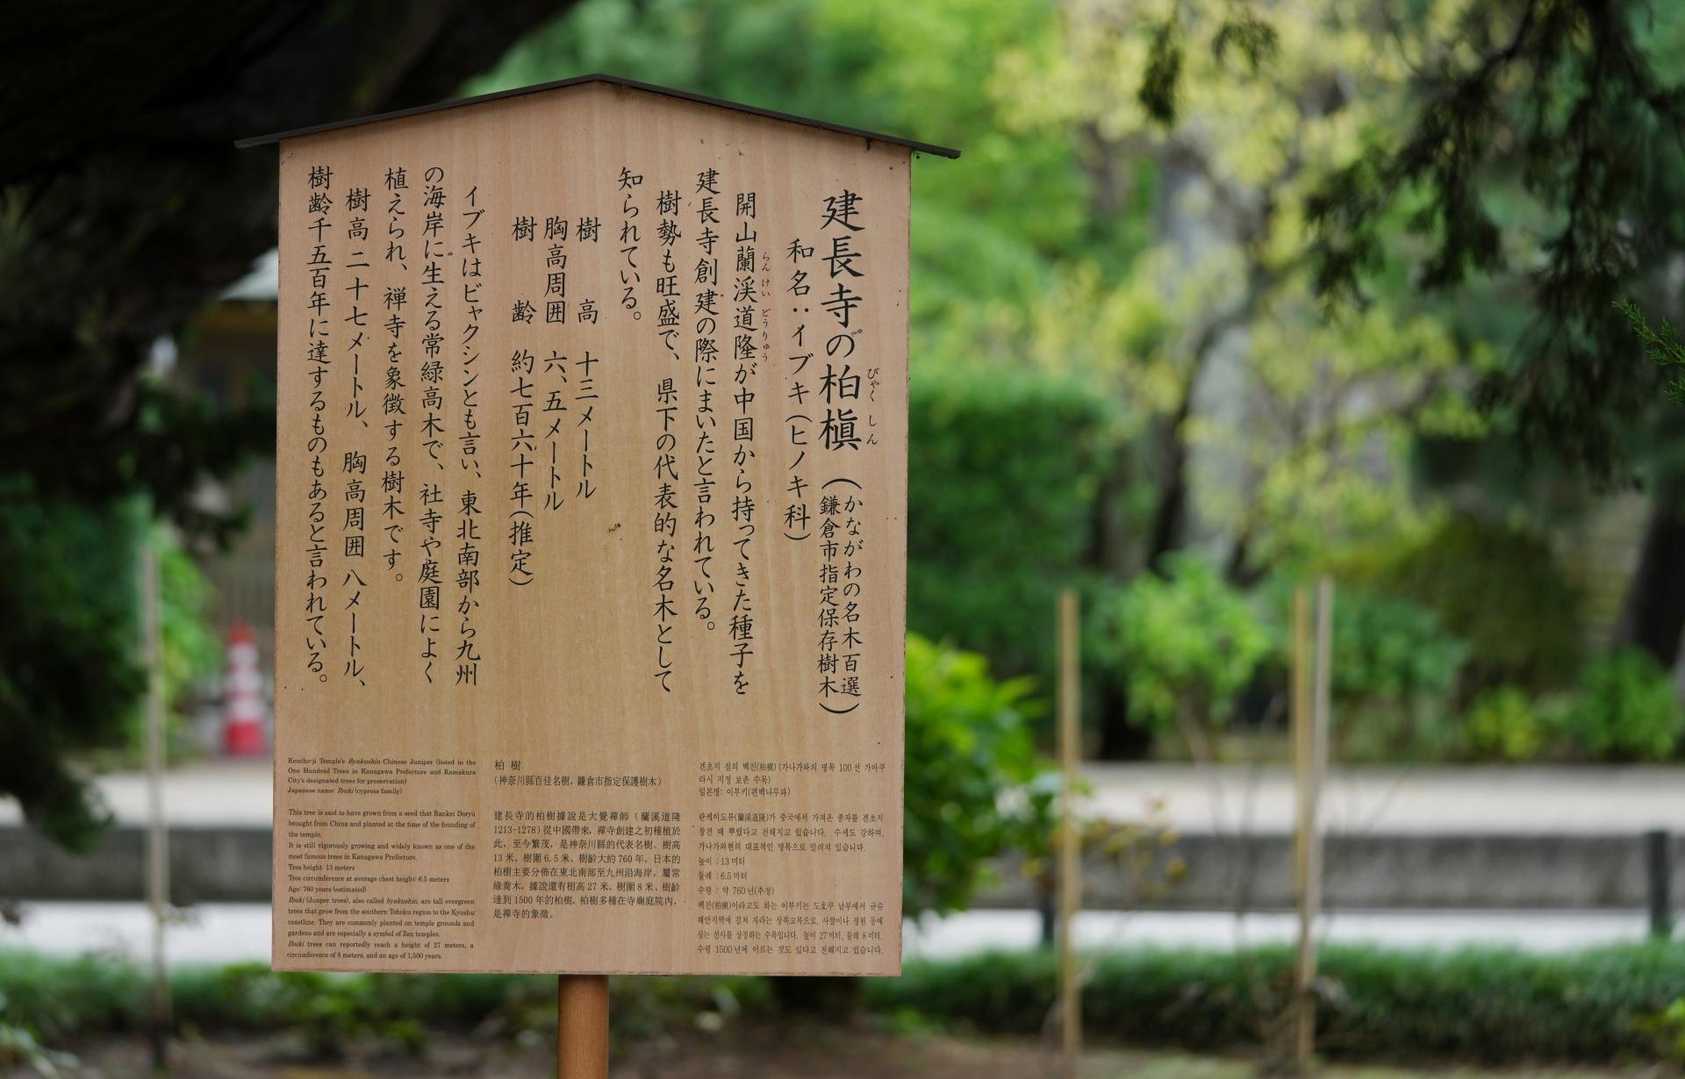 建長寺の柏槇
びゃく しん
(かながわの名木百選
鎌倉市指定保存樹木)
和名：イブキ(ヒノキ科)
開山蘭渓道隆が中国から持ってきた種子を
らん けい どうりゅう
建長寺創建の際にまいたと言われている。
樹勢も旺盛で、県下の代表的な名木として
知られている。
樹 高 十三メートル
胸高周囲 六、五メートル
樹 齢 約七百六十年(推定)
イブキはビャクシンとも言い、東北南部から九州
の海岸に生える常緑高木で、社寺や庭園によく
植えられ、禅寺を象徴する樹木です。
樹高 二十七メートル、胸高周囲 八メートル、
樹齢千五百年に達するものもあると言われている。
Kencho-ji Temple's Byakushin Chinese Juniper (listed in the
One Hundred Trees in Kanagawa Prefecture and Kamakura
City's designated trees for preservation)
Japanese name: Ibuki (cypress family)
This tree is said to have grown from a seed that Rankei Doryu
brought from China and planted at the time of the founding of
the temple.
It is still vigorously growing and widely known as one of the
most famous trees in Kanagawa Prefecture.
Tree height: 13 meters
Tree circumference at average chest height: 6.5 meters
Age: 760 years (estimated)
Ibuki (Juniper trees), also called byakushin, are tall evergreen
trees that grow from the southern Tohoku region to the Kyushu
coastline. They are commonly planted on temple grounds and
gardens and are especially a symbol of Zen temples.
Ibuki trees can reportedly reach a height of 27 meters, a
circumference of 8 meters, and an age of 1,500 years.
柏 樹
(神奈川縣百佳名樹，鎌倉市指定保護樹木)
建長寺的柏樹據說是大覺禪師（蘭溪道隆
1213-1278）從中國帶來，禪寺創建之初種植於
此，至今繁茂，是神奈川縣的代表名樹。樹高
13 米，樹圍 6.5 米，樹齡大約 760 年。日本的
柏樹主要分佈在東北南部至九州沿海岸，屬常
綠喬木。據說還有樹高 27 米、樹圍 8 米、樹齡
達到 1500 年的柏樹。柏樹多種在寺廟庭院內，
是禪寺的象徵。
켄초지 절의 백진(柏槇) (가나가와의 명목 100선 가마쿠
라시 지정 보존 수목)
일본명: 이부키(편백나무과)
란케이도류(蘭渓道隆)가 중국에서 가져온 종자를 켄초지
창건 때 뿌렸다고 전해지고 있습니다. 수세도 강하며,
가나가와현의 대표적인 명목으로 알려져 있습니다.
높이 : 13 미터
둘레 : 6.5 미터
수령 : 약 760 년(추정)
백진(柏槇)이라고도 하는 이부키는 도호쿠 남부에서 규슈
해안지역에 걸쳐 자라는 상록교목으로, 사찰이나 정원 등에
심는 선사를 상징하는 수목입니다. 높이 27미터, 둘레 8 미터,
수령 1500 년에 이르는 것도 있다고 전해지고 있습니다.